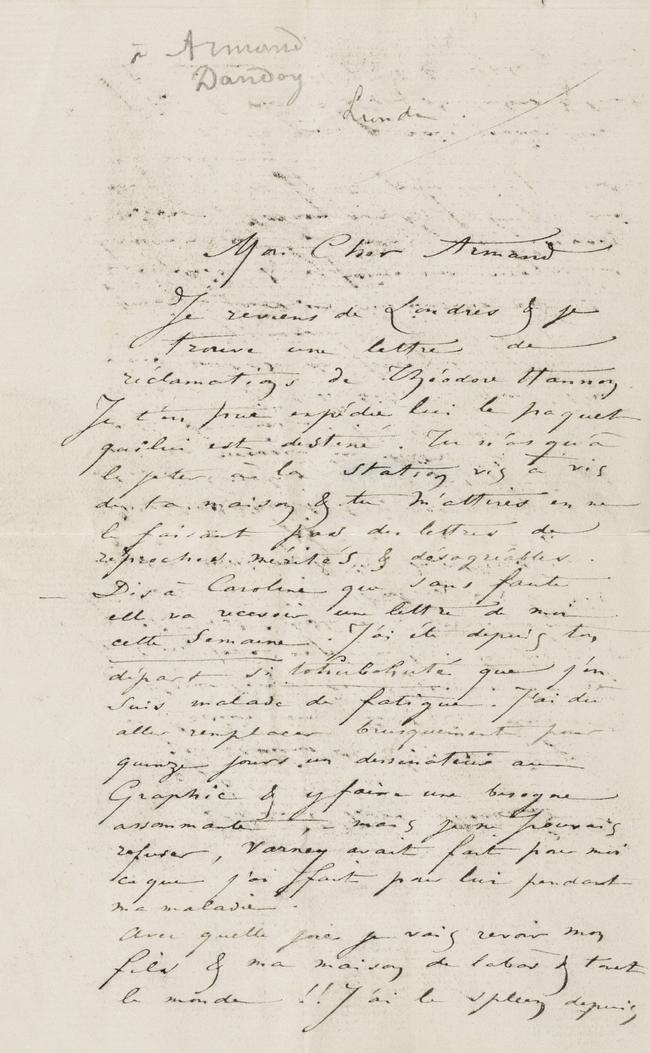 à Armand
Dandoy
Lundi
Mon Cher Armand
Je reviens de Londres & je
trouve une lettre de
réclamations de Théodore Hannon
Je t'en prie expédie lui le paquet
qui lui est destiné. Tu n'as qu'à
le jeter à la station vis à vis
de ta maison & tu m'attires en ne
le faisant pas des lettres de
reproches mérités & désagréables.
Dis à Caroline que sans faute
elle va recevoir une lettre de moi
cette Semaine. J'ai été depuis ton
départ si tohubohuté que j'en
suis malade de fatigue. J'ai du
aller remplacer brusquement pour
quinze jours un dessinateur au
Graphic & y faire une besogne
assommante, - mais je ne pouvais
refuser, Varney avait fait pour moi
ce que j'ai fait pour lui pendant
ma maladie.
Avec quelle joie je vais revoir mon
fils & ma maison de labas & tout
le monde !! J'ai le spleen depuis